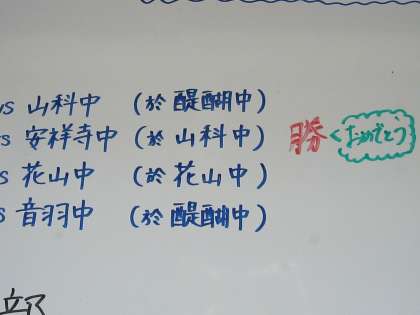 vs 山科中 (於 醍醐中)
vs 安祥寺中 (於 山科中) 勝 おめでとう
s 花山中 (於 花山中)
s 音羽中 (於 醍醐中)
部